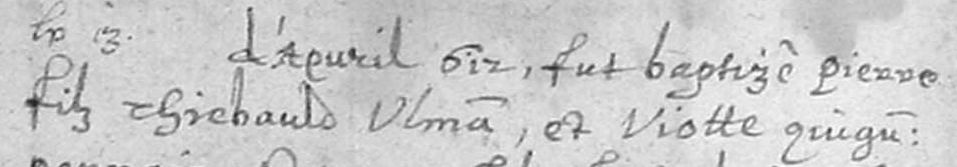 le 13. d'Apuril 612, fut baptizé pierre
filz Thiebauld Ulmā, et Viotte